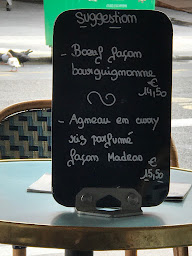 Suggestion
- Bœuf façon
bourguignonne
€
14,50
- Agneau en curry
riz parfumé
façon Madras €
15,50